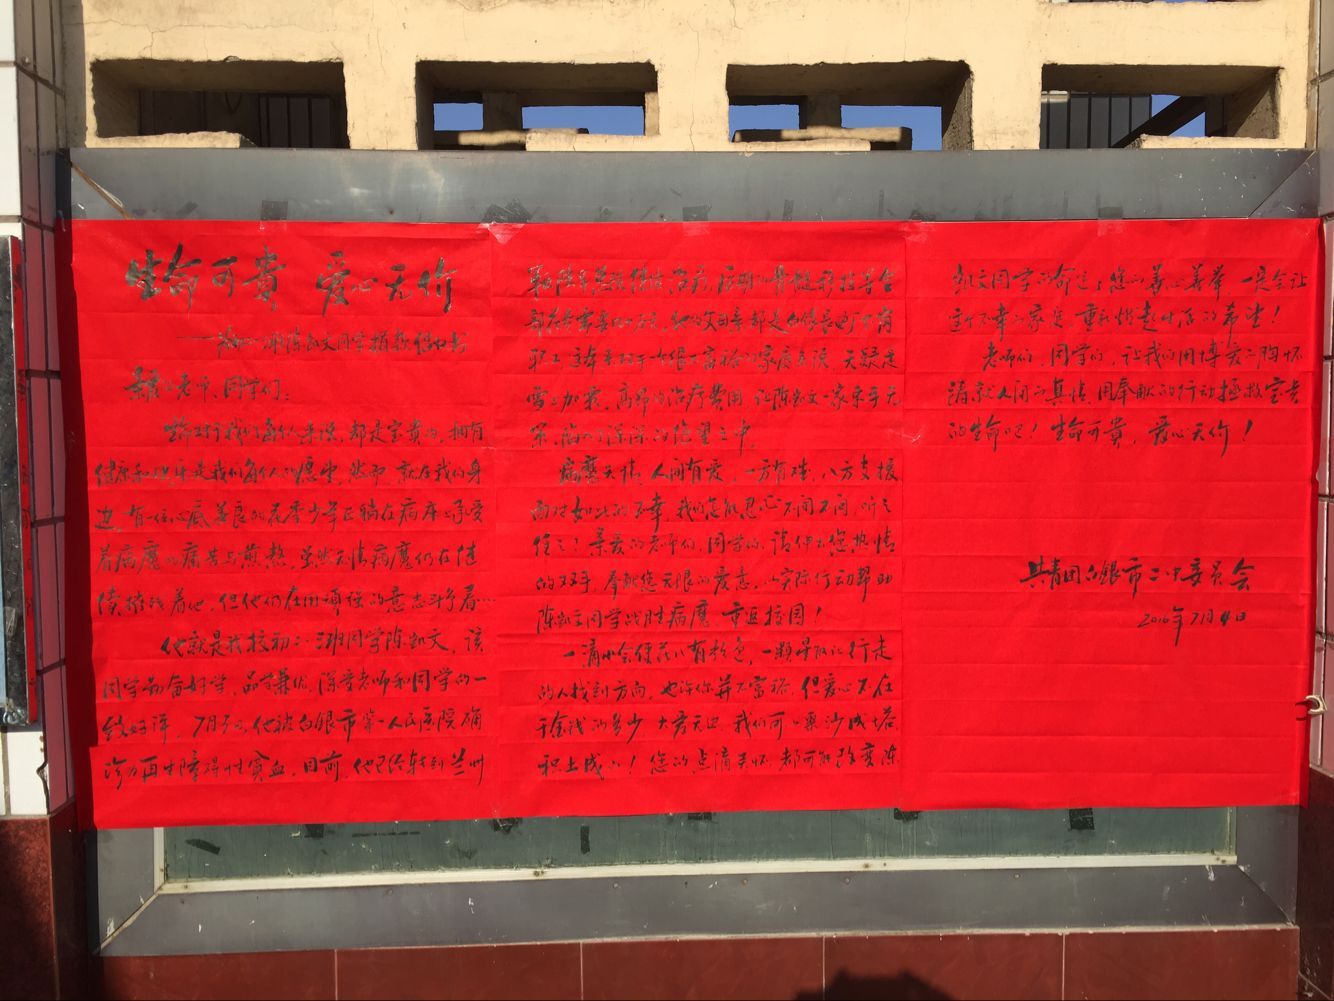 生命可贵 爱心无价
陈凯文同学捐款倡议书
老师、同学们：
生命对于我们每个人来说，都是宝贵的，拥有
健康和快乐是我们每个人的愿望，然而，就在我们身
边，有一位心底善良的花季少年正躺在病床上承受
着病魔的痛苦与煎熬，虽然无情病魔仍在继
续摧残着他，但他仍在用顽强的意志斗争着…
他就是我校初二 班同学陈凯文，该
同学勤奋好学，品学兼优，深受老师和同学的一
致好评，7月 日，他被白银市第一人民医院确
诊为再生障碍性贫血，目前，他已经转到兰州
治疗，后期的骨髓移植等全
部花费需要 万元，他的父母亲都是白银长通厂下岗
职工，这笔 对于 富裕的家庭来说，无疑是
雪上加霜，高昂的治疗费用，让陈凯文一家束手无
策，陷入了深深的绝望之中。
病魔无情，人间有爱，一方有难，八方支援
面对如此的不幸，我们怎能忍心不闻不问，听之
任之？亲爱的老师们、同学们，请伸出您热情
的双手，奉献您无限的爱意，以实际行动帮助
陈凯文同学战胜病魔，重返校园！
一滴水会使花儿有秀色，一颗星能让行走
的人找到方向，也许你并不富裕，但爱心不在
于金钱的多少，大爱无边，我们可以聚沙成塔
积土成山！您的点滴关怀，都可能改变陈
凯文同学的命运；您的善心善举，一定会让
这个不幸的家庭，重新燃起生活的希望！
老师们，同学们，让我们用博爱的胸怀
铸就人间的真情，用奉献的行动拯救宝贵
的生命吧！生命可贵，爱心无价！
共青团白银市二中委员会
2016年7月4日